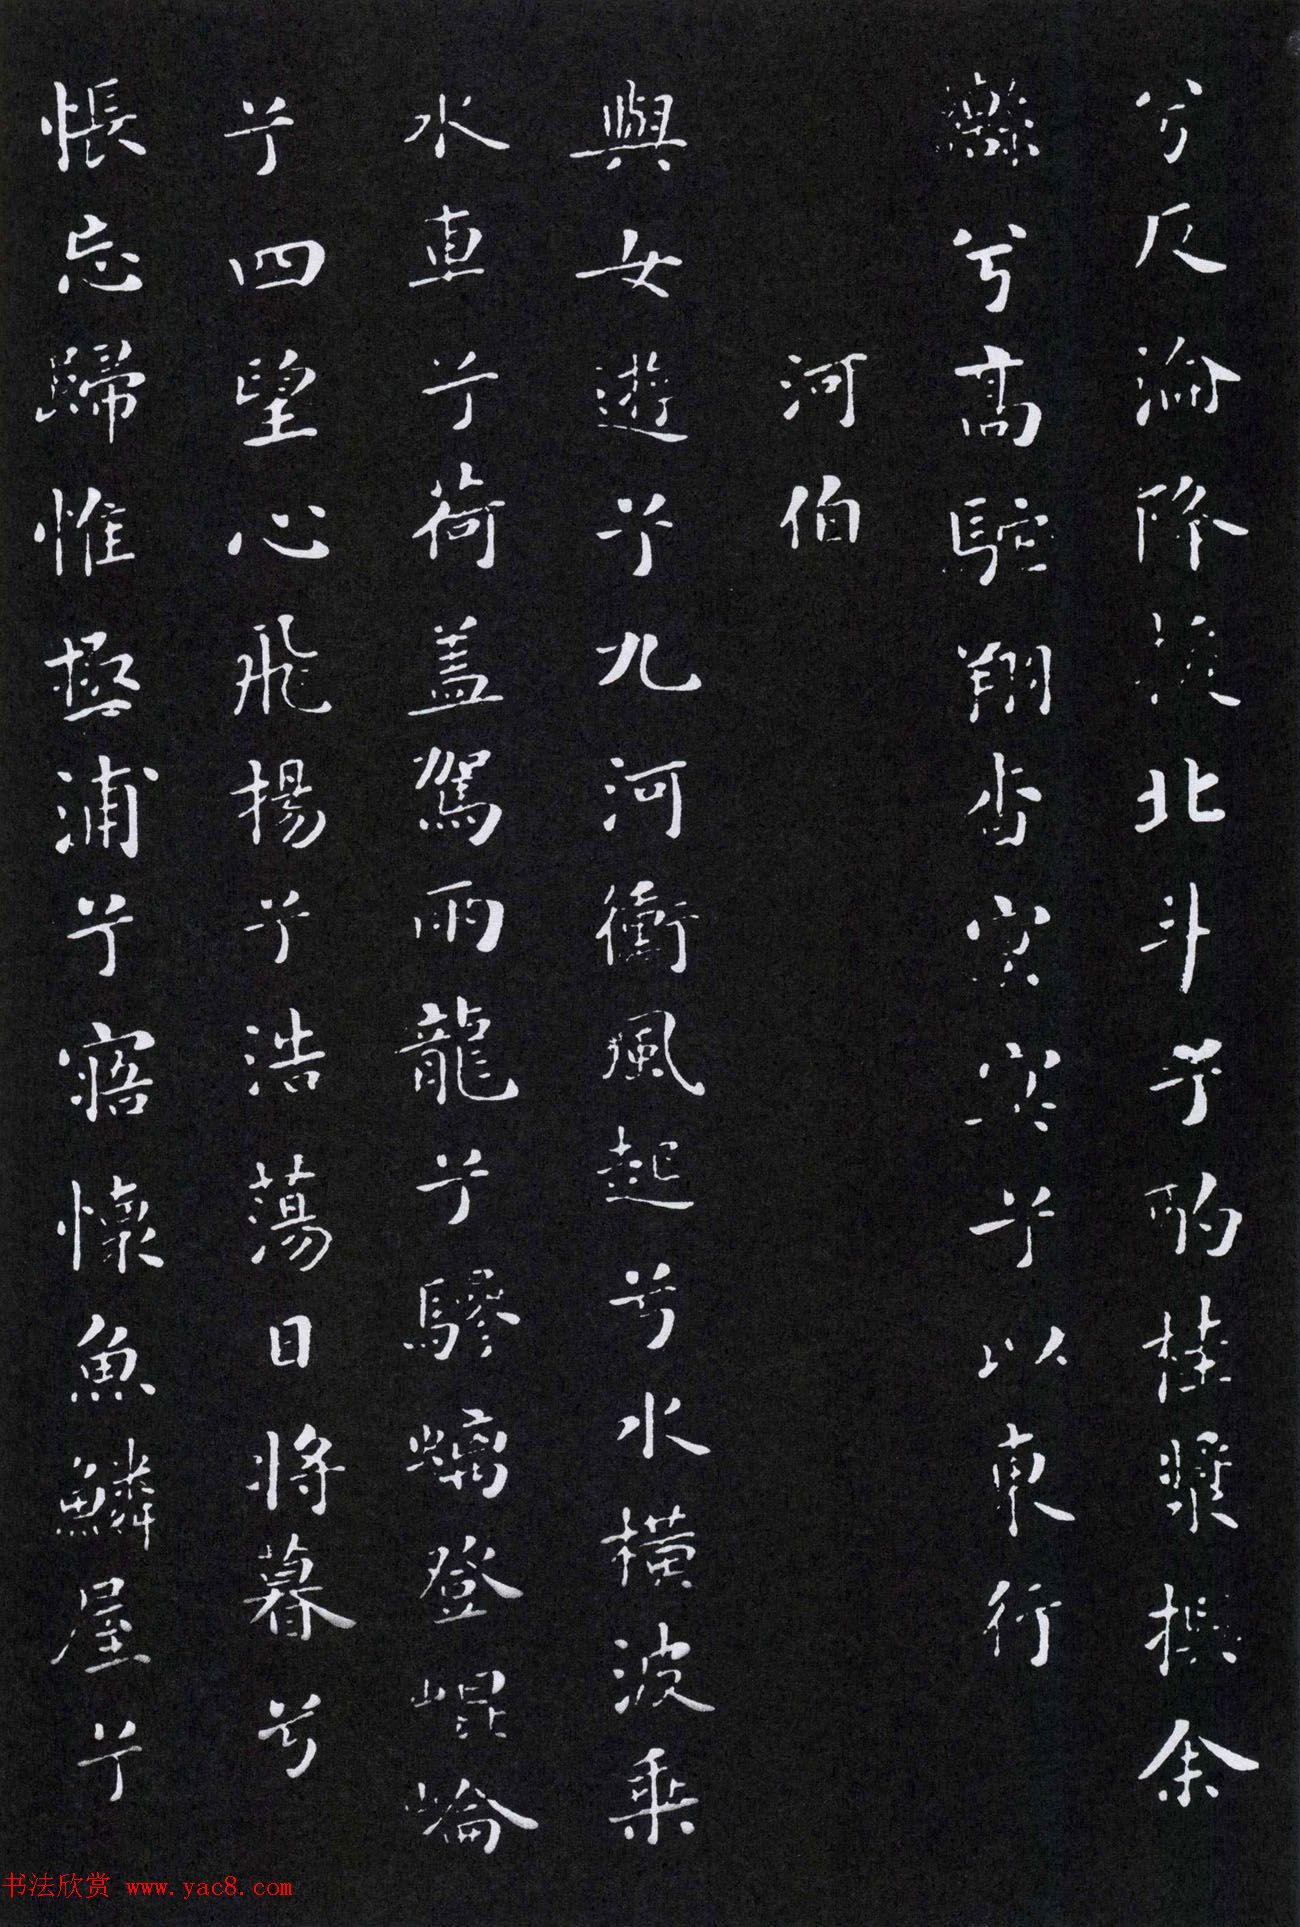 兮反淪降援北斗兮酌桂漿撰余
轡兮高駝翔杳冥冥兮以東行
河伯
與女遊兮九河衝風起兮水橫波乘
水車兮荷蓋駕兩龍兮驂螭登崐崘
兮四望心飛揚兮浩蕩日將暮兮
悵忘歸惟極浦兮寤懷魚鱗屋兮
书法欣赏 www.yac8.com